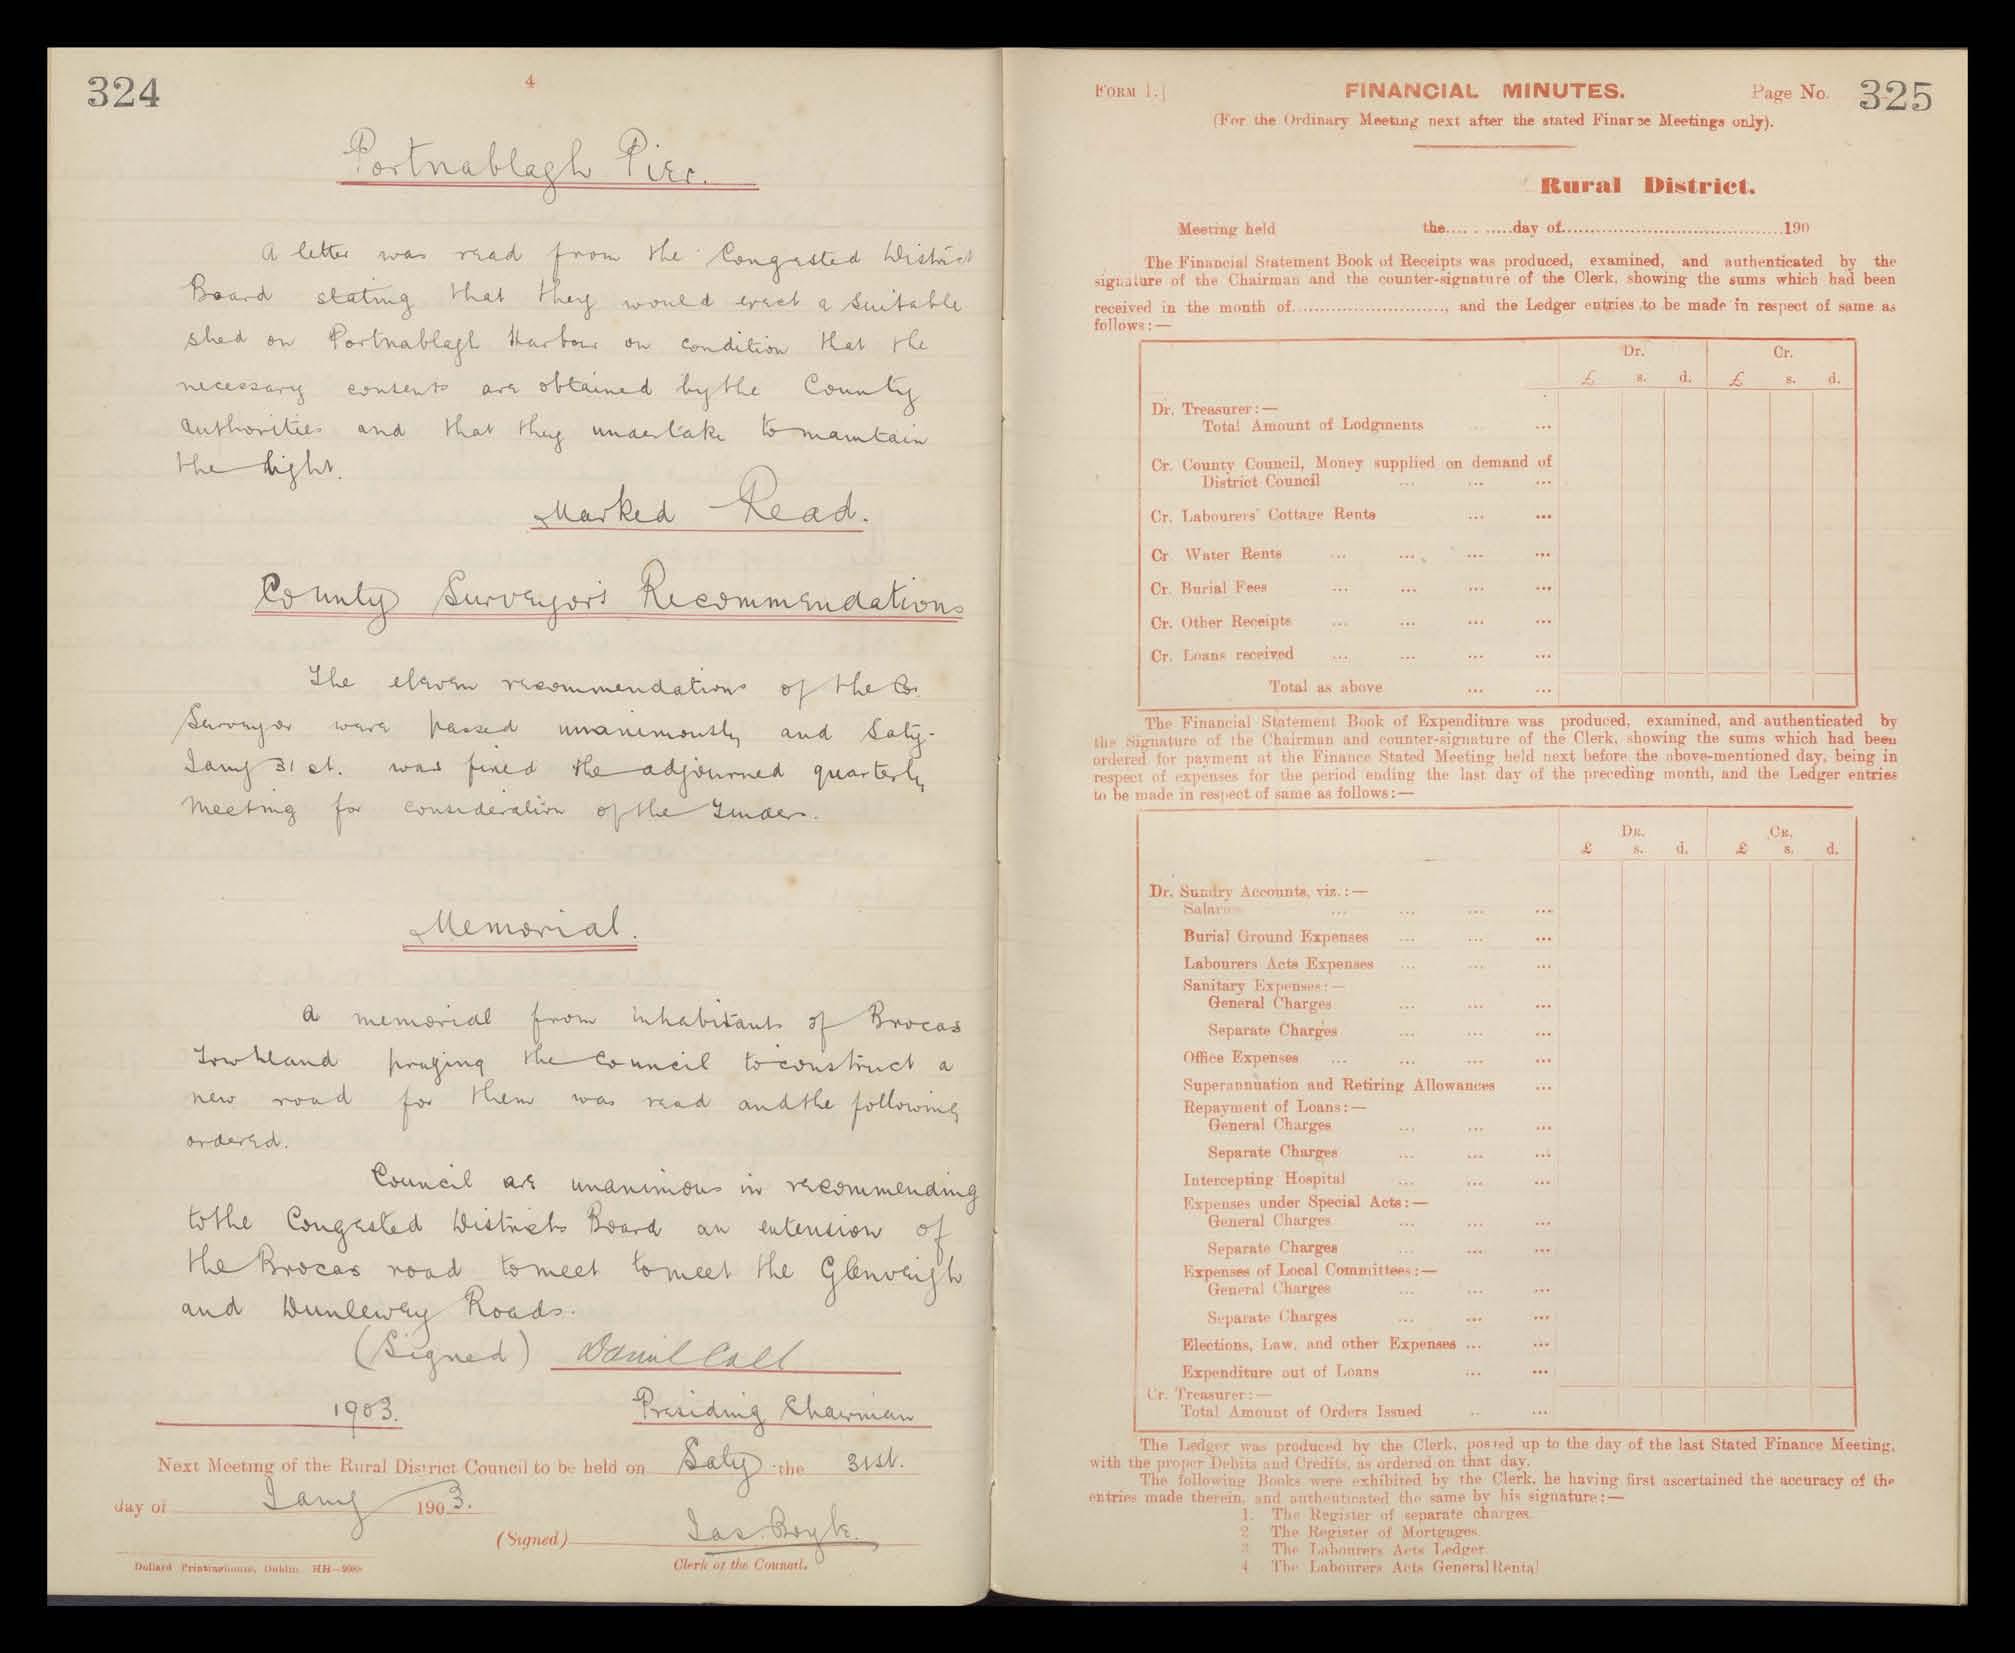 324
4
Portnablagh Pier.
A letter was read from the Congested District
Board stating that they would erect a suitable
shed on Portnablagh Harbour on condition that the
necessary consents are obtained by the County
authorities and that they undertake to maintain
the light.
Marked Read.
County Surveyor's Recommendations
The eleven recommendations of the Co.
Surveyor were passed unanimously and Saty.
Jany 31st. was fixed the adjourned quarterly
meeting for consideration of the Tenders.
Memorial.
A memorial from inhabitants of Brocas
Townland praying the Council to construct a
new road for them was read and the following
ordered.
Council are unanimous in recommending
to the Congested Districts Board an extension of
the Brocas road to meet to meet the Glenveigh
and Dunlewey Roads.
(Signed) Daniel Coll
1903. Presiding Chairman
Next Meeting of the Rural District Council to be held on Saty the 31st.
day of Jany 1903.
(Signed) Jas. Boyle.
Dollard Printinghouse, Dublin. HH— Clerk of the Council.
FORM 1.] FINANCIAL MINUTES. Page No. 325
(For the Ordinary Meeting next after the stated Finance Meetings only).
Rural District.
Meeting held the...........day of..........................................190
The Financial Statement Book of Receipts was produced, examined, and authenticated by the
signature of the Chairman and the counter-signature of the Clerk, showing the sums which had been
received in the month of............................, and the Ledger entries to be made in respect of same as
follows:—
Dr. Cr.
£ s. d. £ s. d.
Dr. Treasurer:—
Total Amount of Lodgments ... ...
Cr. County Council, Money supplied on demand of
District Council ... ... ...
Cr. Labourers' Cottage Rents ... ...
Cr. Water Rents ... ... ... ...
Cr. Burial Fees ... ... ... ...
Cr. Other Receipts ... ... ... ...
Cr. Loans received ... ... ... ...
Total as above ... ...
The Financial Statement Book of Expenditure was produced, examined, and authenticated by
the Signature of the Chairman and counter-signature of the Clerk, showing the sums which had been
ordered for payment at the Finance Stated Meeting held next before the above-mentioned day, being in
respect of expenses for the period ending the last day of the preceding month, and the Ledger entries
to be made in respect of same as follows:—
DR. CR.
£ s. d. £ s. d.
Dr. Sundry Accounts, viz.:—
Salaries ... ... ... ...
Burial Ground Expenses ... ... ...
Labourers Acts Expenses ... ... ...
Sanitary Expenses:—
General Charges ... ... ...
Separate Charges ... ... ...
Office Expenses ... ... ... ...
Superannuation and Retiring Allowances ...
Repayment of Loans:—
General Charges ... ... ...
Separate Charges ... ... ...
Intercepting Hospital ... ... ...
Expenses under Special Acts:—
General Charges ... ... ...
Separate Charges ... ... ...
Expenses of Local Committees:—
General Charges ... ... ...
Separate Charges ... ... ...
Elections, Law, and other Expenses ... ...
Expenditure out of Loans ... ...
Cr. Treasurer:—
Total Amount of Orders Issued ... ...
The Ledger was produced by the Clerk, posted up to the day of the last Stated Finance Meeting,
with the proper Debits and Credits, as ordered on that day.
The following Books were exhibited by the Clerk, he having first ascertained the accuracy of the
entries made therein, and authenticated the same by his signature:—
1. The Register of separate charges.
2. The Register of Mortgages.
3. The Labourers Acts Ledger.
4. The Labourers Acts General Rental